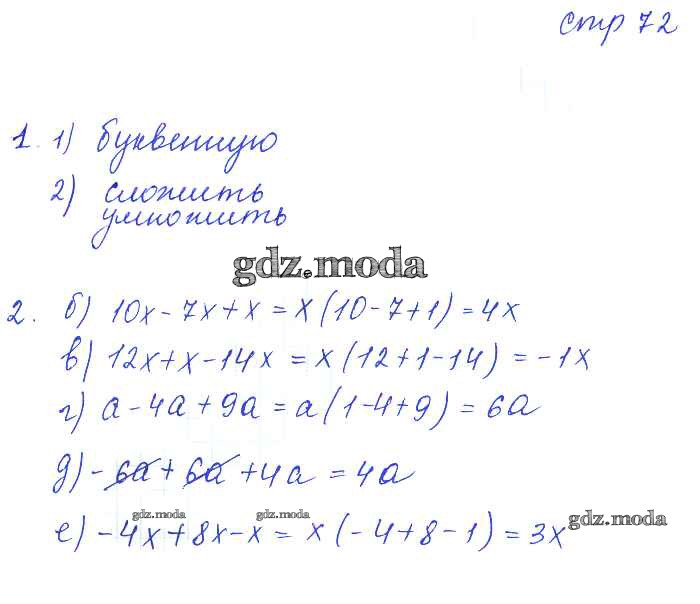 стр 72
1. 1) буквенную
2) сложить
умножить
gdz.moda
2. б) 10x - 7x + x = x(10 - 7 + 1) = 4x
в) 12x + x - 14x = x(12 + 1 - 14) = -1x
г) a - 4a + 9a = a(1 - 4 + 9) = 6a
д) -6a + 6a + 4a = 4a
gdz.moda gdz.moda
е) -4x + 8x - x = x(-4 + 8 - 1) = 3x
gdz.moda